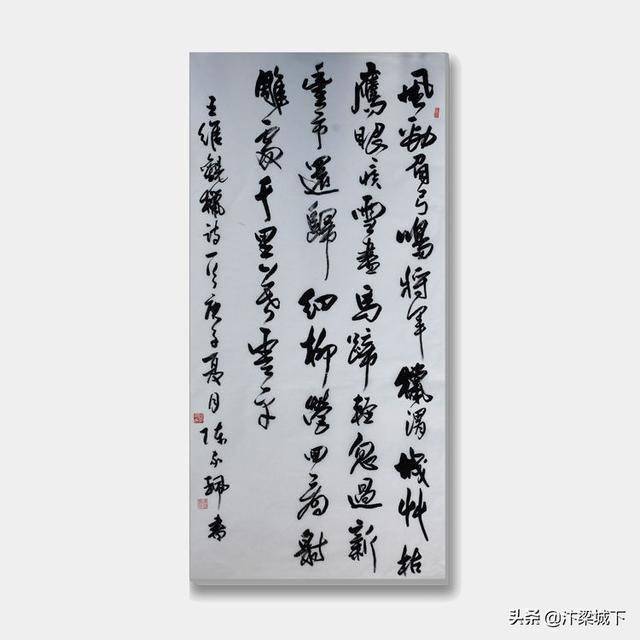 風勁角弓鳴將軍獵渭城艸枯
鷹眼疾雪盡馬蹄輕忽過新
豐市還歸細柳營回看射
雕處千里暮雲平
王維觀獵詩一首庚子夏月陳書
头条 @汴梁城下